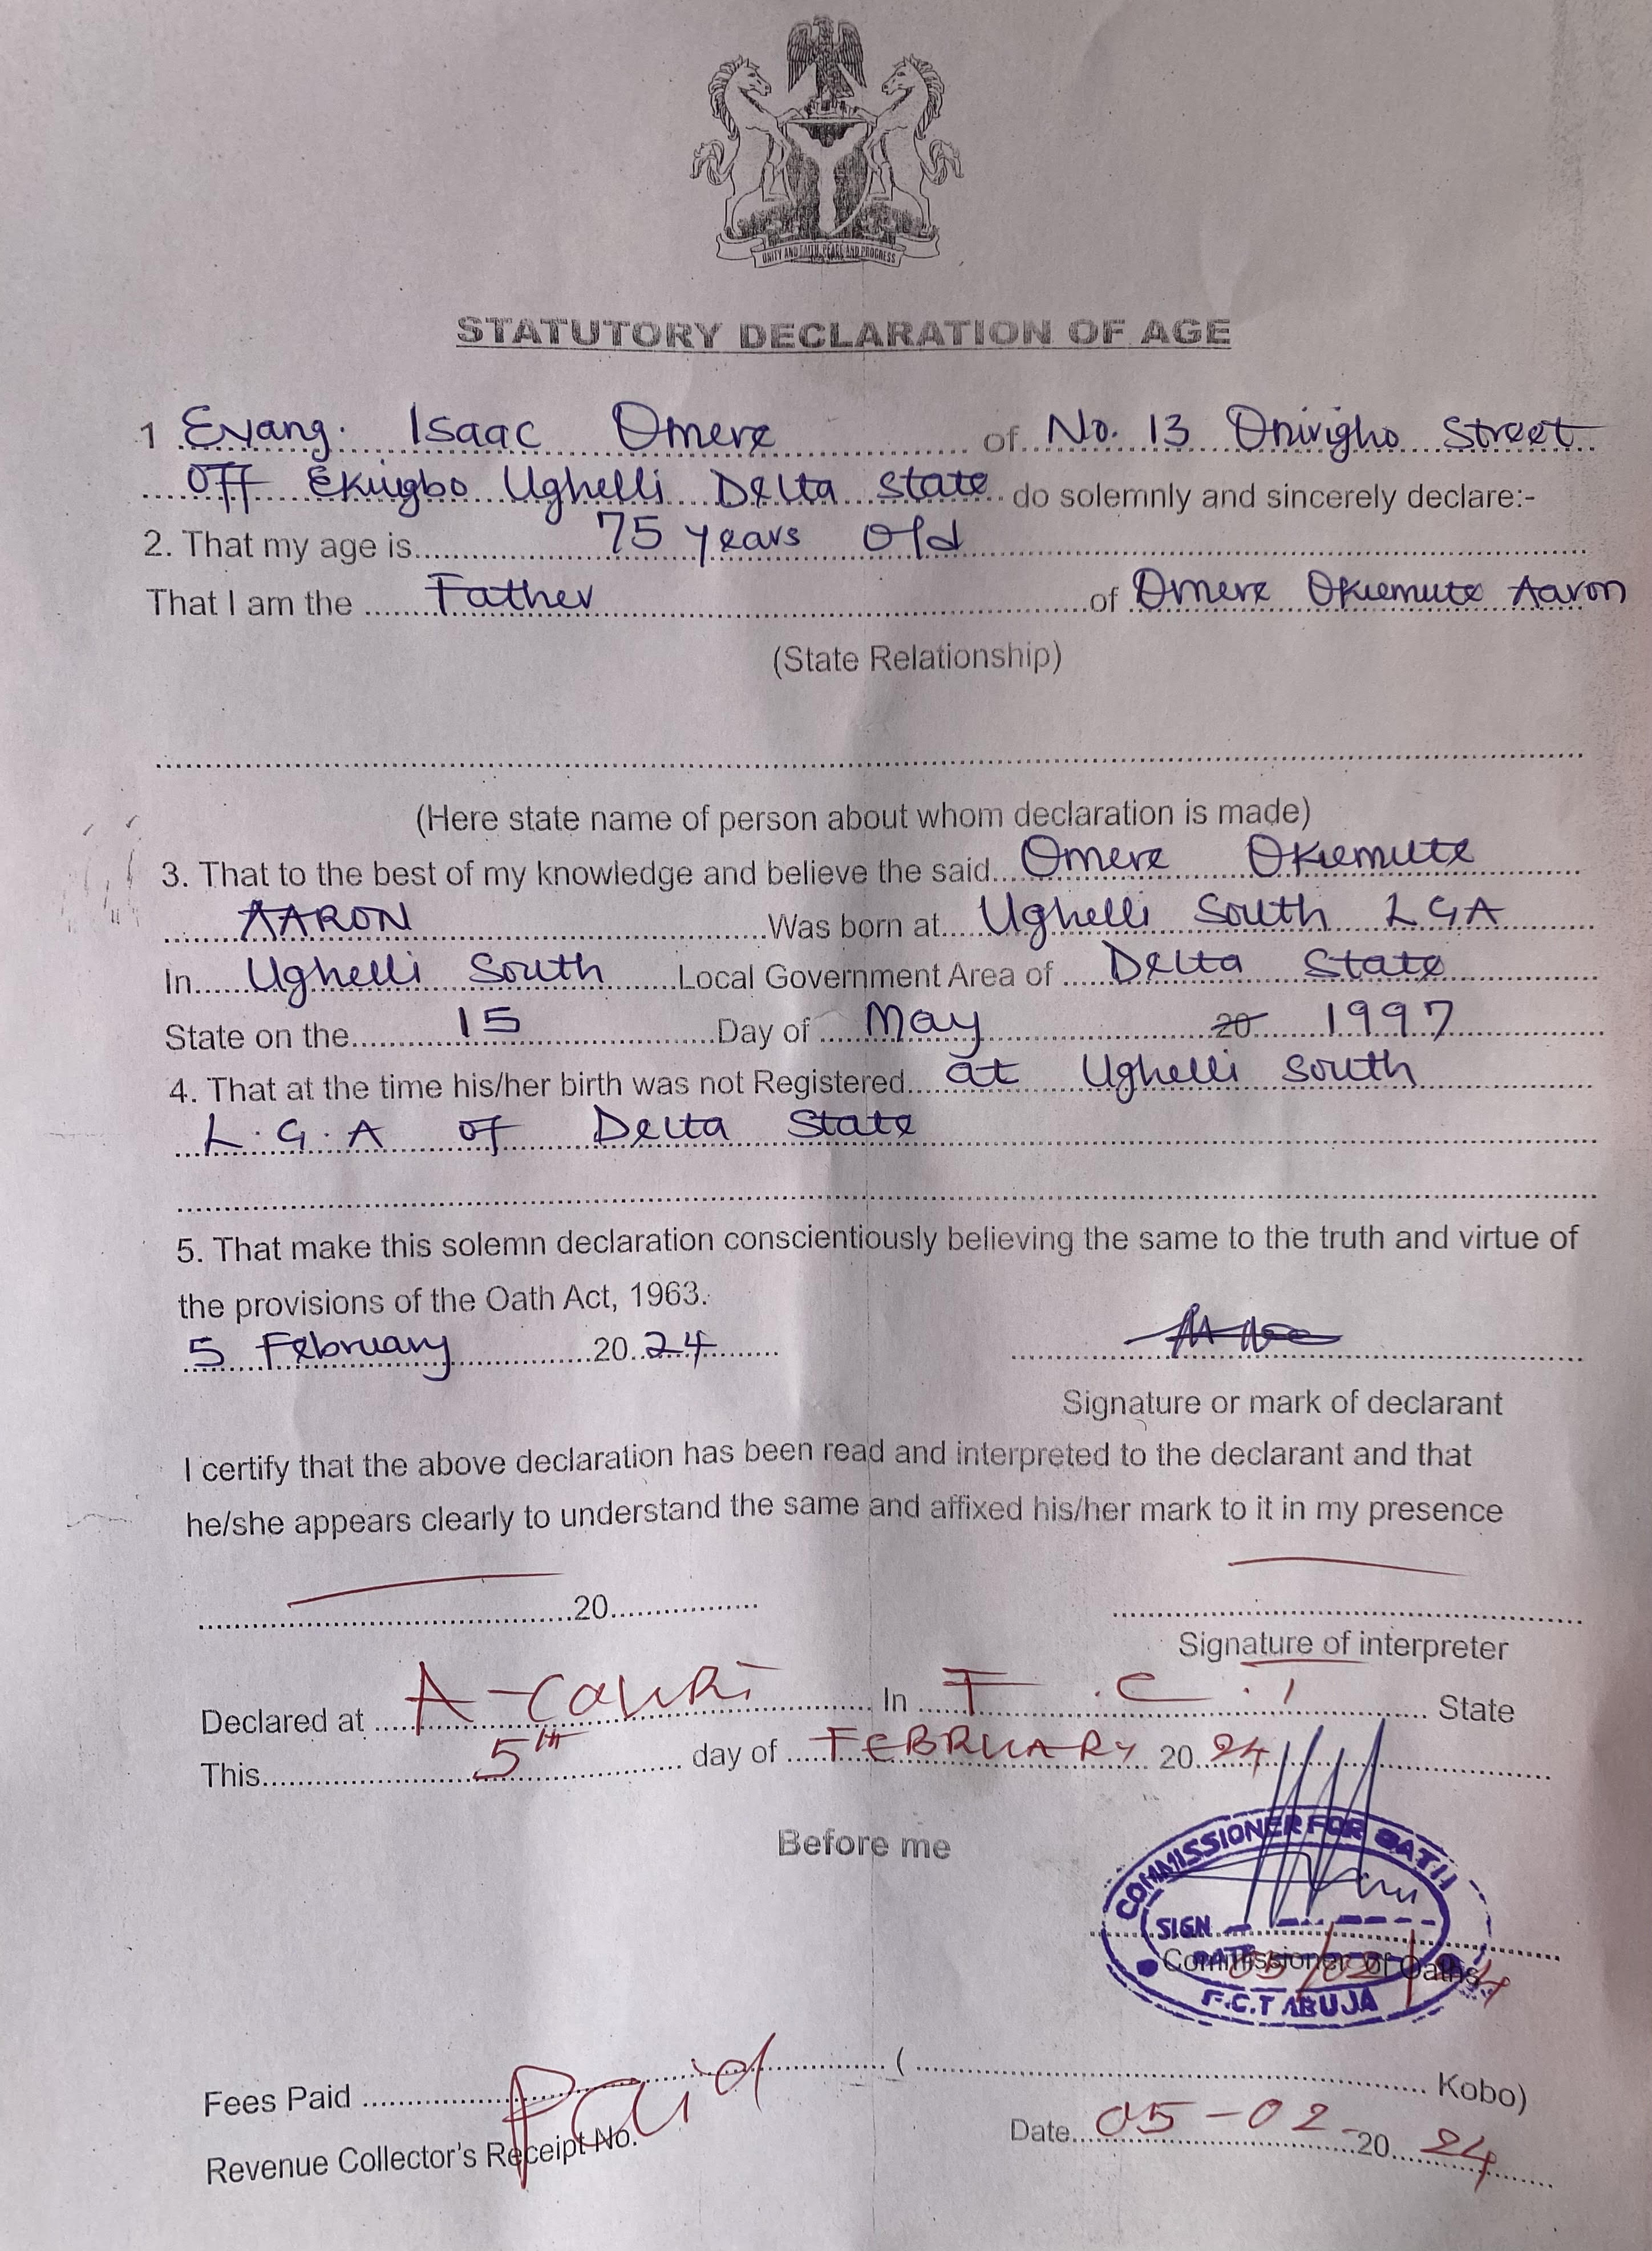 UNITY AND FAITH, PEACE AND PROGRESS
STATUTORY DECLARATION OF AGE
1 Evang. Isaac Omere of No. 13 Onivigho Street
Off Ekuigbo Ughelli Delta State do solemnly and sincerely declare:-
2. That my age is 75 years Old
That I am the Father of Omere Okiemute Aaron
(State Relationship)
(Here state name of person about whom declaration is made)
3. That to the best of my knowledge and believe the said Omere Okiemute
AARON Was born at Ughelli South LGA
In Ughelli South Local Government Area of Delta State
State on the 15 Day of May 20 1997
4. That at the time his/her birth was not Registered at Ughelli South
L.G.A of Delta State
5. That make this solemn declaration conscientiously believing the same to the truth and virtue of
the provisions of the Oath Act, 1963.
5 February 20 24
Signature or mark of declarant
I certify that the above declaration has been read and interpreted to the declarant and that
he/she appears clearly to understand the same and affixed his/her mark to it in my presence
20
Signature of interpreter
Declared at In F.C.T State
This 5th day of FEBRUARY 20 24
Before me
COMMISSIONER FOR OATH
SIGN
DATE 05/02/24
Commissioner of Oaths
F.C.T ABUJA
Fees Paid Paid ( Kobo)
Revenue Collector's Receipt No.
Date 05-02-20 24